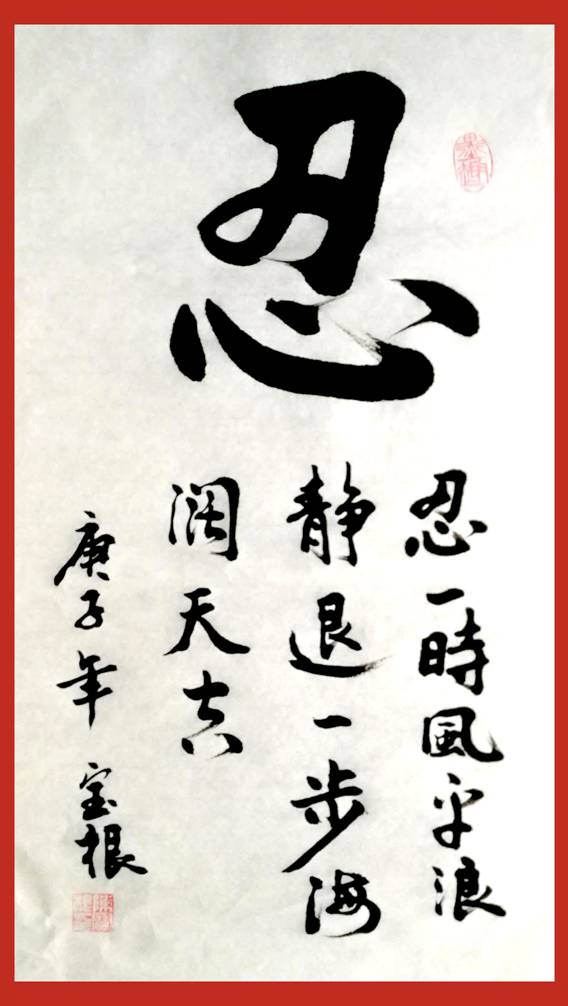 忍
忍一時風平浪
静退一步海
濶天高
庚子年 宝根